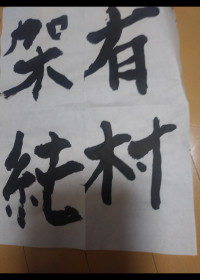 有村
架純